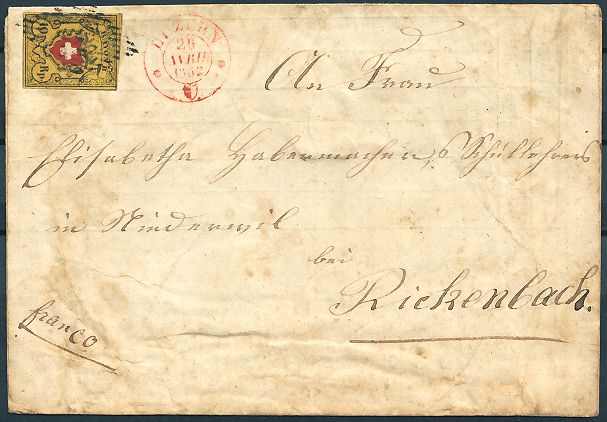 10
Rp.
LUZERN
29
AVRIL
1852
An Frau
Elisabetha Habermacher, Schullehrers
in Niederwil
bei
Rickenbach.
franco